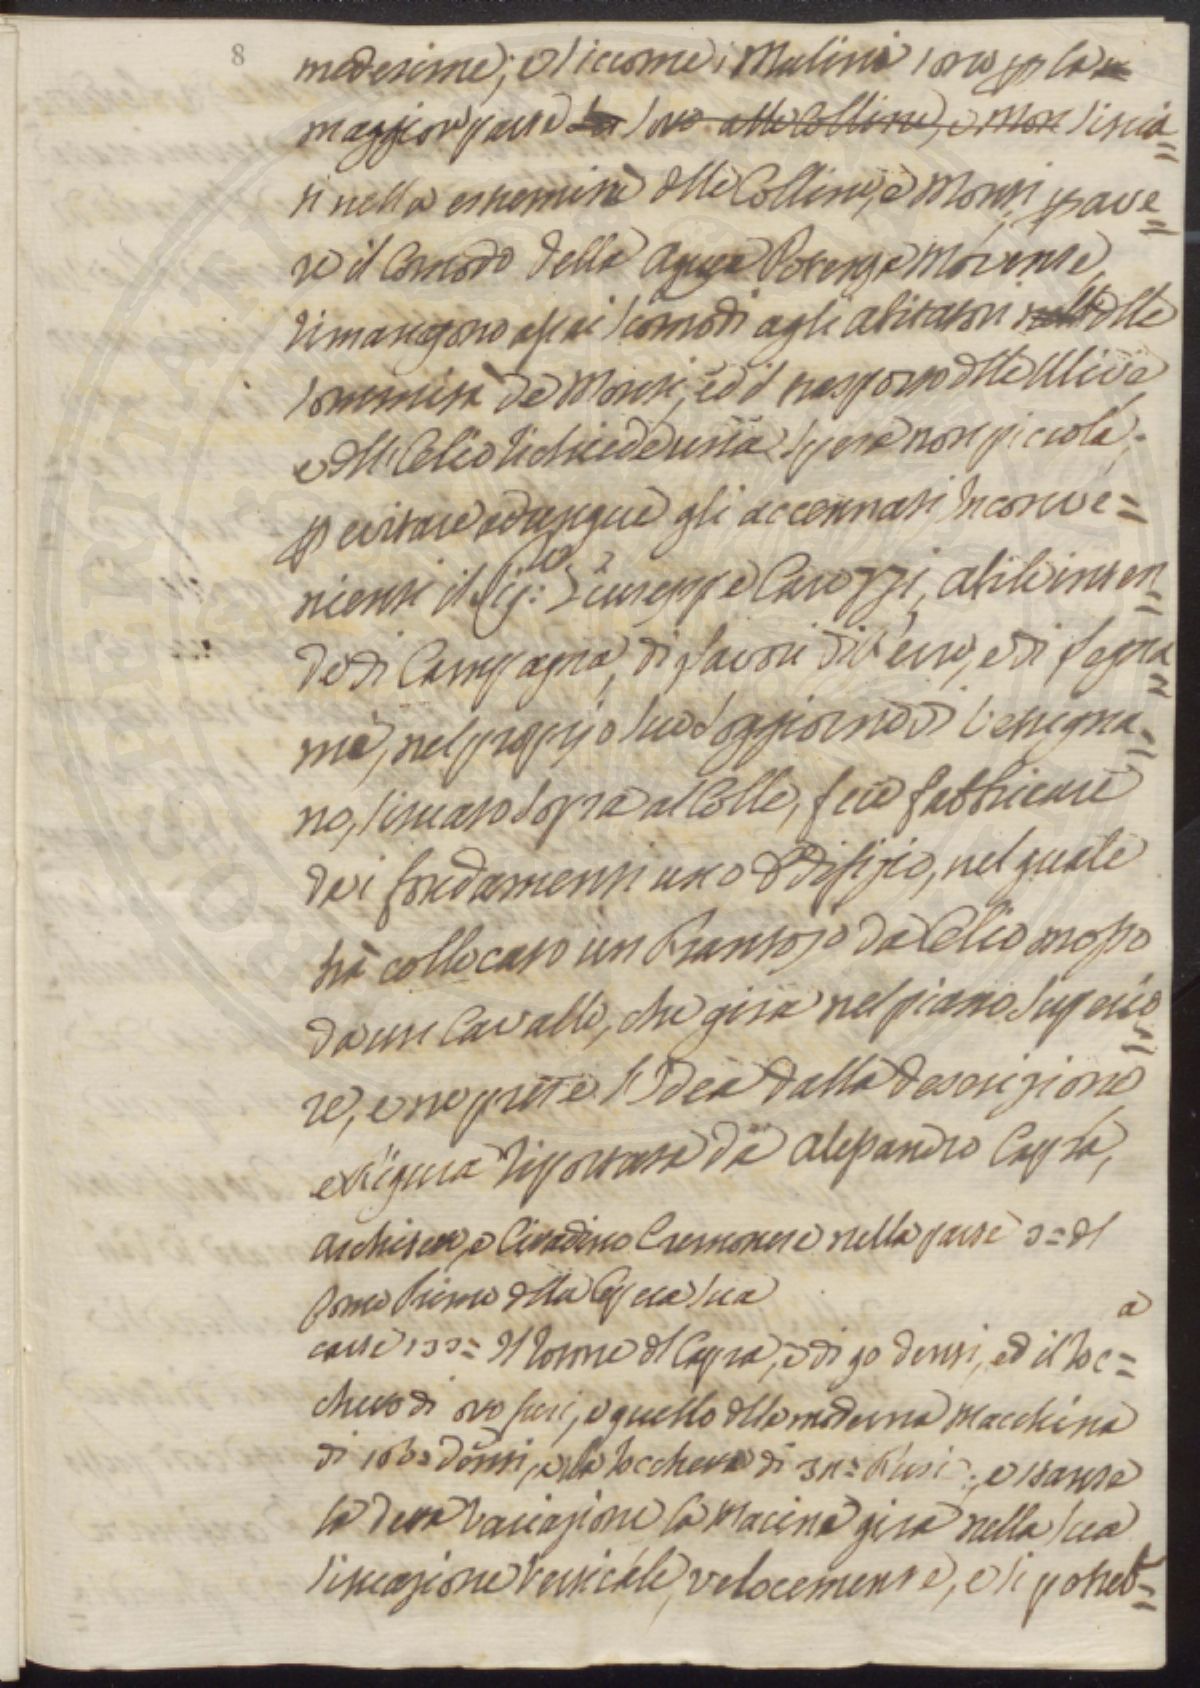 8
medesime; e siccome i Mulini sono p la
maggior parte sono alle Colline, e Mon situa=
ti nella estremità delle Colline, e Monti, p ave=
re il Comodo della Acqua Potenza Movente,
rimangono assai scomodi agli abitatori delle
sommità de Monti, ed il trasporto delle Ulive
e dell'Olio richiede una spesa non piccola;
p evitare adunque gli accennati Inconve=
nienti il Sig:re Giuseppe Carozzi, abile inten=
de di Campagna, di lavori di Ferro, e di Legna=
me, nel proprio suo Soggiorno di Vessigna=
no, situato sopra al Colle, fece fabbricare
dai fondamenti uno Edifizio, nel quale
hà collocato un Frantojo da Olio mosso
da un Cavallo, che gira nel piano Superio=
re, e ne prese l'Idea dalla descrizione
e Figura riportata da Alessandro Capra,
Architetto, e Cittadino Cremonese nella parte 3= del
Tomo Primo della Opera sua a
carte 133= Il Torno del Capra, è di 90 denti, ed il Roc=
cheto di otto fusi, e quello della moderna Macchina
di denti, e la Roccheta di Fusi; e stante
la detta Variazione la Macina gira nella sua
situazione Verticale, velocemente, e si potreb=